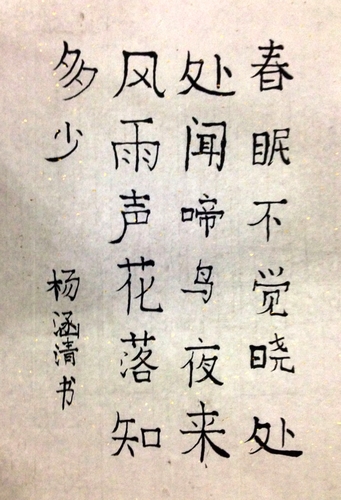 春眠不觉晓处
处闻啼鸟夜来
风雨声花落知
多少
杨涵清书